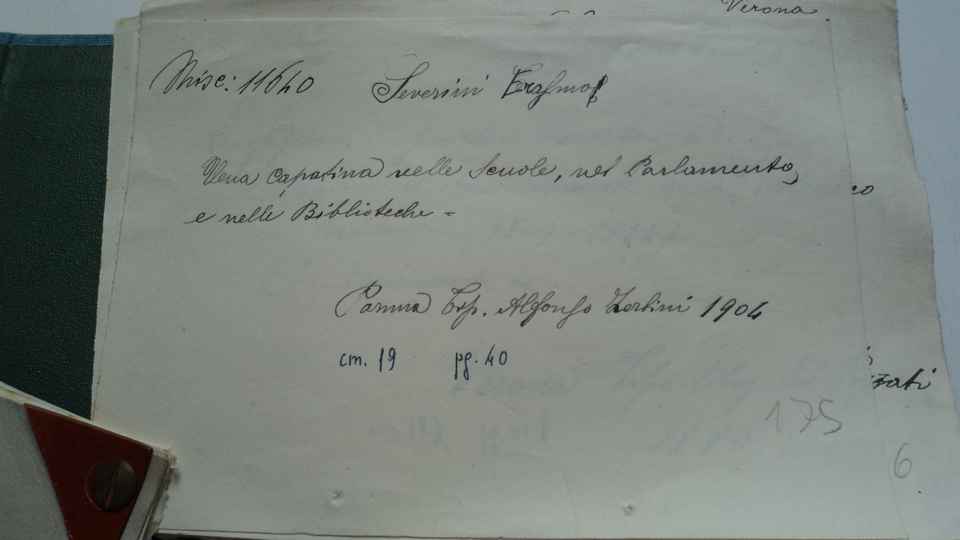 Verona.
Misc: 11640 Severini Erasmo
Vena capatina nelle Scuole, nel Parlamento,
e nelle Biblioteche =
co
Parma Tip. Alfonso Zerbini 1904
cm. 19 pg. 40
zzati
175
6